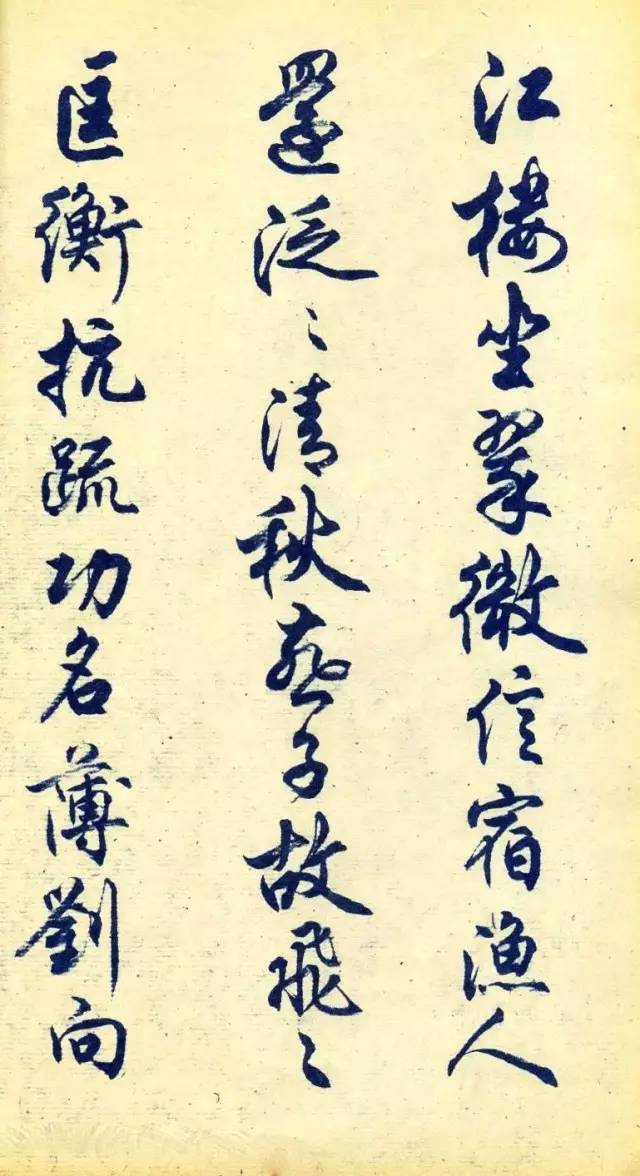 江楼坐翠微信宿漁人
還泛〻清秋燕子故飛〻
匡衡抗疏功名薄劉向